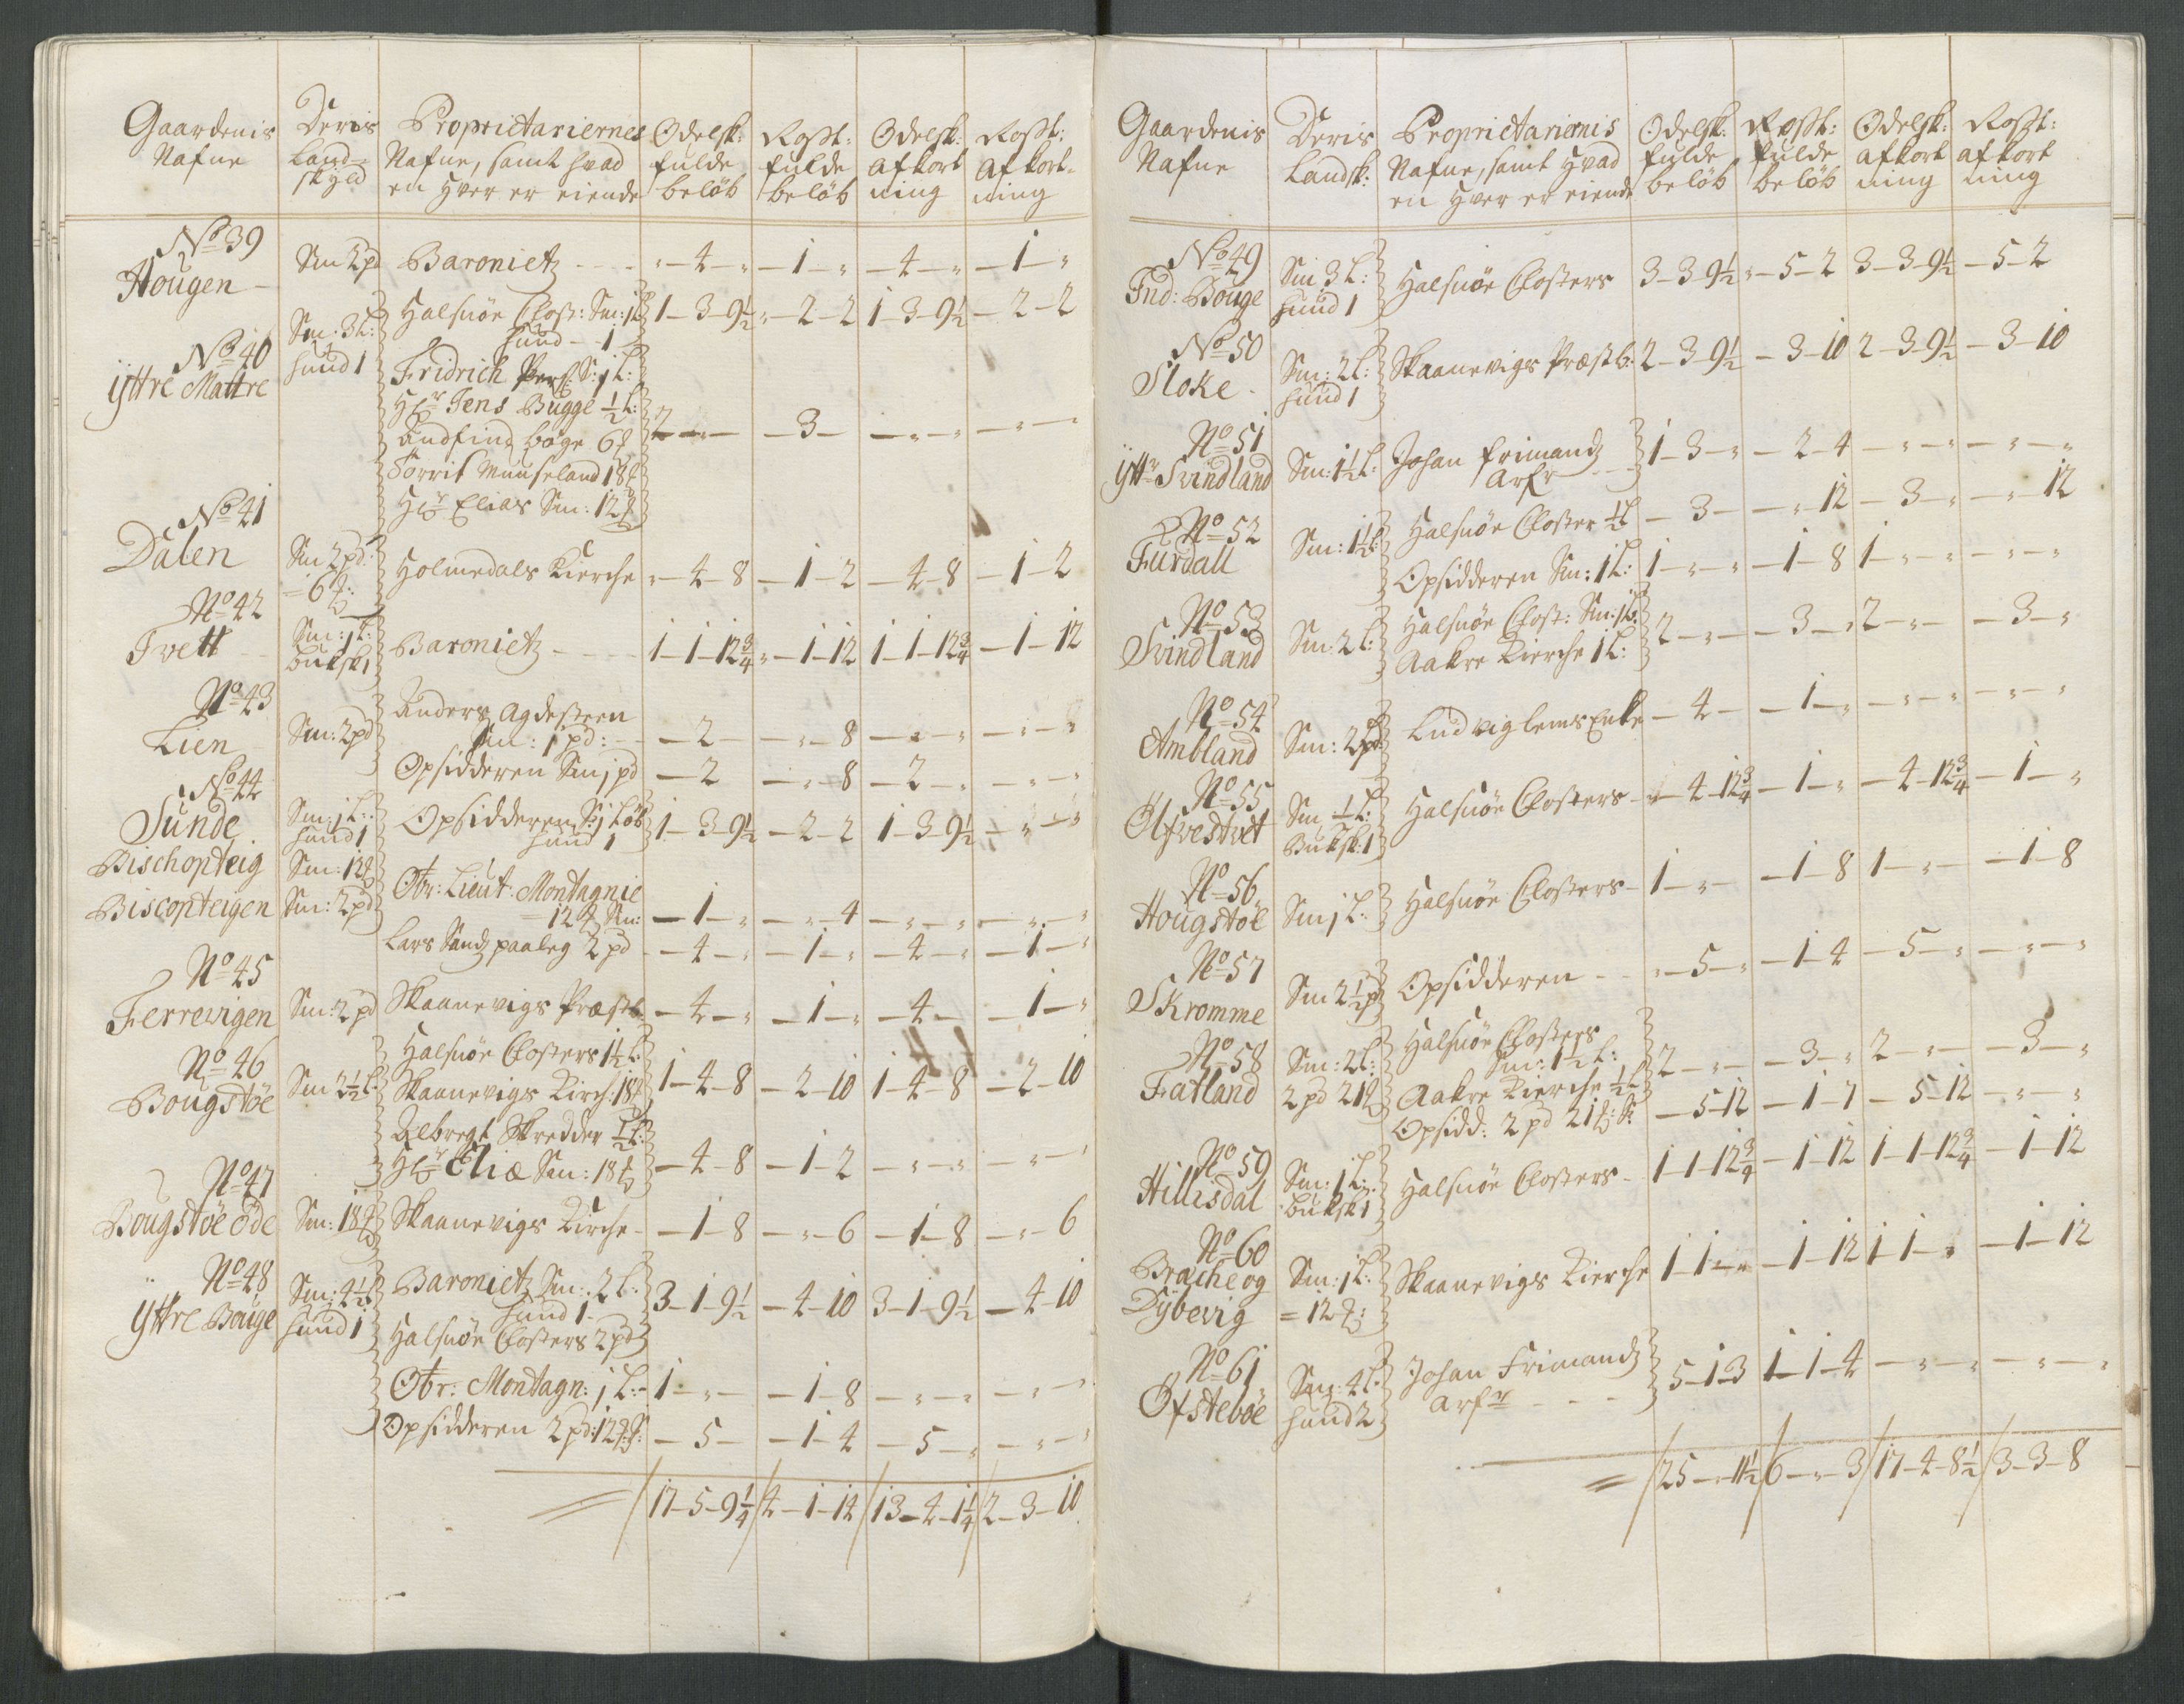 Gaardenis Nafne | Deris Landskyld | Proprietariernes Nafne, samt hvad en hver er eiende | Odelsk: fulde beløb | Rosst: fulde beløb | Odelsk: afkortning | Rosst: Afkortning
No 39 Hougen | Sm 2 pd | Baronietz | " - 4 - " | - 1 - " | - 4 - " | - 1 - "
No 40 Yttre Mattre | Sm: 3 L: hund 1 | Halsnöe Clost: Sm: 1 L hund - 1 | 1 - 3 - 9½ | " - 2 - 2 | 1 - 3 - 9½ | - 2 - 2
Fridrich S: 1 L:
Hr Jens Bugge ½ L:
Andfind böge 6 | 2 - " - | - 3 - | - " - " | - " - "
Torris Munseland 18
Hr Elias Sm: 12
No 41 Dalen | Sm 2 pd: = 6 | Holmedals Kierche | " - 4 - 8 | - 1 - 2 | - 4 - 8 | - 1 - 2
No 42 Tvett | Sm: 1 L: buksk 1 | Baronietz | 1 - 1 - 12¾ | " - 1 - 12 | 1 - 1 - 12¾ | - 1 - 12
No 43 Lien | Sm: 2 pd | Anders Agdesteen
Sm: 1 pd: | - 2 - | - " - 8 | - " - " | - " - "
Opsidderen Sm 1 pd | - 2 | - " - 8 | - 2 - " | - " - "
No 44 Sunde | Sm: 1 L: hund 1 | Opsidderen S: 1 Löb hund 1 | 1 - 3 - 9½ | - 2 - 2 | 1 - 3 - 9½ | - " - "
Bischopteig | Sm: 12 | Obr: Lieut: Montagnie
= 12 Sm: | - 1 - " | - " - 4 | - " - " | - " - "
Biscopteigen | Sm: 2 pd | Lars Sandz paaleg 2 pd | - 4 - " | - 1 - " | - 4 - " | - 1 - "
No 45 Ferrevigen | Sm: 2 pd | Skaanevigs Præstb | - 4 - " | - 1 - " | - 4 - | - 1 - "
No 46 Bougstöe | Sm 2½ L | Halsnöe Closters 1½ L:
Skaanevigs Kirch: 18 | 1 - 4 - 8 | - 2 - 10 | 1 - 4 - 8 | - 2 - 10
Albregt Skredder ½ L:
Hr Eliæ Sm: 18 | - 4 - 8 | - 1 - 2 | - " - " | - " - "
No 47 Bougstöe öde | Sm: 18 | Skaanevigs Kirche | - 1 - 8 | - " - 6 | - 1 - 8 | - " - 6
No 48 Yttre Bouge | Sm: 4½ L hund 1 | Baronietz Sm: 2 L: hund 1 | 3 - 1 - 9½ | - 4 - 10 | 3 - 1 - 9½ | - 4 - 10
Halsnöe Closters 2 pd
Obr: Montagn: 1 L: | 1 - " - | - 1 - 8 | - " - " | - " - "
Opsidderen 2 pd: 12 S: | - 5 - | - 1 - 4 | - 5 - " | - " - "
= / 17 - 5 - 9¼ / 4 - 1 - 14 / 13 - 4 - 1¼ / 2 - 3 - 10
Gaardenis Nafne | Deris Landsk: | Proprietarienis Nafne, samt hvad en hver er eiende | Odelsk: fulde beløb | Rosst: fulde beløb | Odelsk: afkortning | Rosst: afkortning
No 49 Ind: Bouge | Sm: 3 L: hund 1 | Halsnöe Closters | 3 - 3 - 9½ | " - 5 - 2 | 3 - 3 - 9½ | - 5 - 2
No 50 Sloke | Sm: 2 L: hund 1 | Skaanevigs Præstb: | 2 - 3 - 9½ | - 3 - 10 | 2 - 3 - 9½ | - 3 - 10
No 51 Yttr Svindland | Sm: 1½ L: | Johan frimandz Arfr | 1 - 3 - " | - 2 - 4 | - " - " | - " - "
No 52 Furdall | Sm: 1½ L: | Halsnöe Closter ½ L | - 3 - | - " - 12 | - 3 - " | - " - 12
Opsidderen Sm: 1 L: | 1 - " - " | - 1 - 8 | 1 - " - " | - " - "
No 53 Svindland | Sm: 2 L: | Halsnöe Clost: Sm: 1 L:
Aakre Kierche 1 L: | 2 - " - | - 3 - " | 2 - " - | - 3 - "
No 54 Ambland | Sm: 2 pd: | Ludvig lems Enke | - 4 - | - 1 - " | - " - " | - " - "
No 55 Ølfvestvet | Sm ½ L: Buksk: 1 | Halsnöe Closters | - 4 - 12¾ | - 1 - " | - 4 - 12¾ | - 1 - "
No 56 Hougstöe | Sm 1 L: | Halsnöe Closters | 1 - " - | - 1 - 8 | 1 - " - | - 1 - 8
No 57 Skromme | Sm 2½ p | Opsidderen | " - 5 - " | - 1 - 4 | - 5 - " | - " - "
No 58 Fatland | Sm: 2 L: 2 pd 21 | Halsnöe Closters
Sm: 1½ L:
Aakre Kierche ½ L | 2 - " - | - 3 - " | 2 - " - | - 3 - "
Opsidd: 2 pd 21 S: | - 5 - 12 | - 1 - 7 | - 5 - 12 | - " - "
No 59 Hillesdal | Sm: 1 L: Buksk 1 | Halsnöe Closters | 1 - 1 - 12¾ | - 1 - 12 | 1 - 1 - 12¾ | - 1 - 12
No 60 Brache og Dybevig | Sm: 1 L: = 12 | Skaanevigs Kierche | 1 - 1 - " | - 1 - 12 | 1 - 1 - " | - 1 - 12
No 61 Øfsteböe | Sm: 4 L: hund 2 | Johan Frimandz Arfr | 5 - 1 - 3 | 1 - 1 - 4 | - " - " | - " - "
= / 25 - " - 11½ / 6 - " - 3 / 17 - 4 - 8½ / 3 - 3 - 8